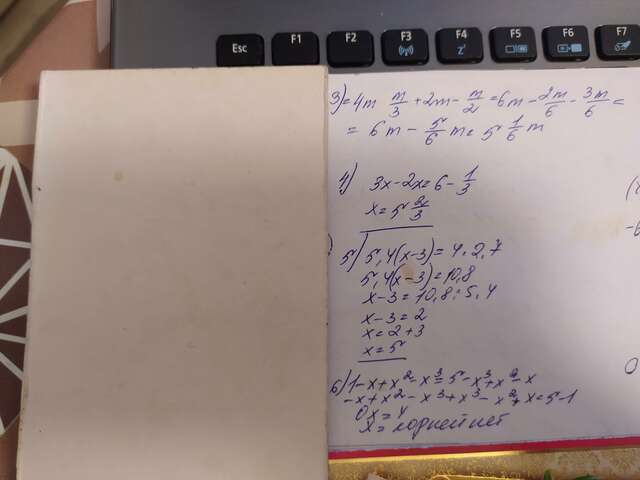 Esc F1 F2 F3 F4 F5 F6 F7
3) = 4m m/3 + 2m - m/2 = 6m - 2m/6 - 3m/6 =
= 6m - 5/6 m = 5 1/6 m
4) 3x - 2x = 6 - 1/3
x = 5 2/3
5) 5,4(x-3) = 4 . 2,7
5,4(x-3) = 10,8
x - 3 = 10,8 : 5,4
x - 3 = 2
x = 2 + 3
x = 5
6) 1 - x + x² - x³ = 5 - x³ + x² - x
- x + x² - x³ + x³ - x² + x = 5 - 1
0x = 4
x = корней нет